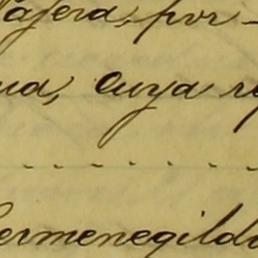 ajera, por
ua, cuya re
ermenegildo